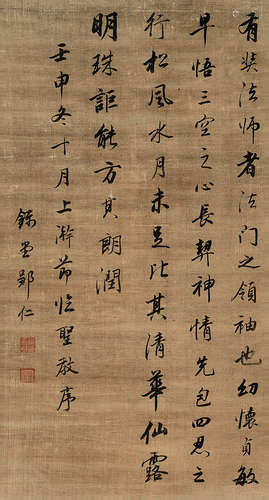 有奘法师者法門之領袖也幼懷貞敏
早悟三空之心長契神情先包四忍之
行松風水月未足比其清華仙露
明珠詎能方其朗潤
壬申冬十月上澣節临聖教序
鄒仁